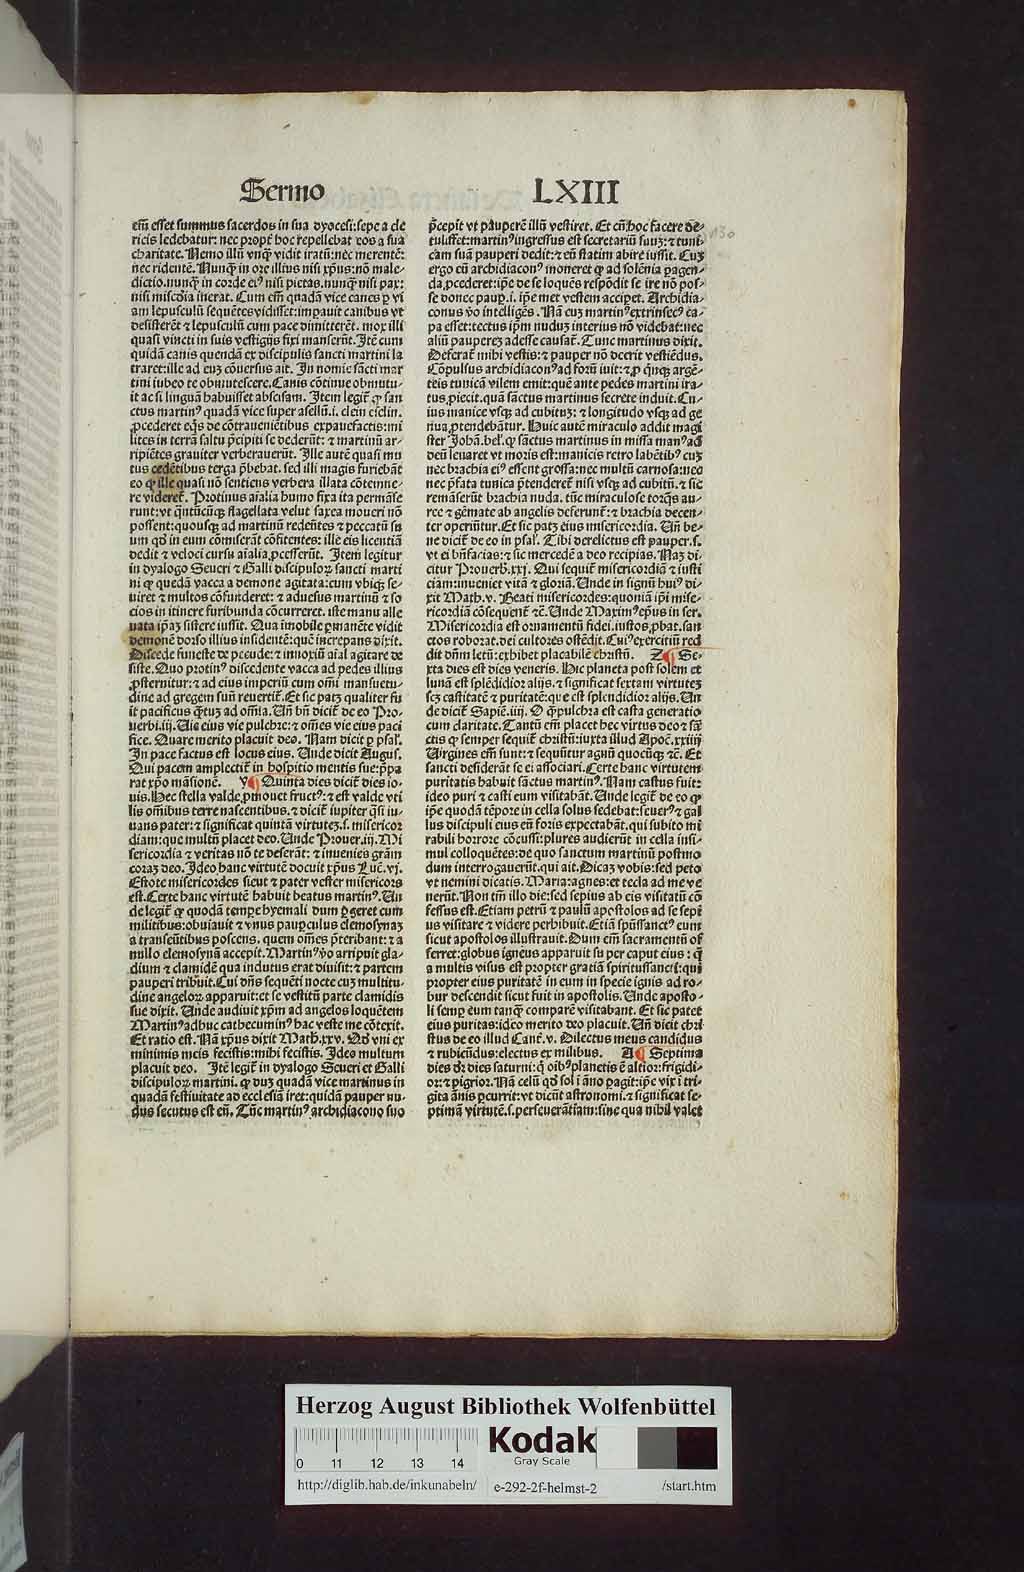 Sermo
LXIII
em̄ esset summus sacerdos in sua dyocesi: sepe a cle
ricis ledebatur: nec propē hoc repellebat eos a sua
charitate. Nemo illū vnq̄ vidit iratū: nec merentē:
nec ridentē. Nunq̄ in ore illius nisi xp̄us: nō male-
dictio. nunq̄ in corde eiꝰ nisi pietas. nunq̄ nisi pax:
nisi miscďia inerat. Cum em̄ quadā vice canes ꝑ vi
am lepusculū sequētes vidisset: imꝑauit canibus vt
desisterēt ⁊ lepusculū cum pace dimitterēt. mox illi
quasi vincti in suis vestigijs fixi manserūt. Itē cum
quidā canis quendā ex discipulis sancti martini la
traret: ille ad euꝫ cōuersus ait. In nomie sācti mar
tini iubeo te obmutescere. Canis cōtinue obmutu-
it ac si linguā habuisset abscisam. Item legit̄ ꝙ san
ctus martinꝰ quadā vice super asellū .i. clein eselin.
ꝓcederet eq̄s de cōtraueniētibus expauefactis: mi
lites in terrā saltu p̄cipiti se dederūt: ⁊ martinū ar-
ripiētes grauiter verberauerūt. Ille autē quasi mu
tus cedētibus terga p̄bebat. sed illi magis furiebāt
eo ꝙ ille quasi nō sentiens verbera illata cōtemne-
re videret̄. Protinus aīalia humo fixa ita permāse
runt: vt q̄ntūcūqꝫ flagellata velut saxea moueri nō
possent: quousqꝫ ad martinū redeūtes ⁊ peccatū su
um qď in eum cōmiserāt cōfitentes: ille eis licentiā
dedit ⁊ veloci cursu aīalia ꝓcesserūt. Item legitur
in dyalogo Seueri ⁊ Galli discipuloꝝ sancti marti
ni ꝙ quedā vacca a demone agitata: cum vbiqꝫ se-
uiret ⁊ multos cōfunderet: ⁊ aduersus martinū ⁊ so
cios in itinere furibunda cōcurreret. iste manu alle
uata ip̄aꝫ sistere iussit. Qua īmobile ꝑmanēte vidit
demonē dorso illius insidentē: quē increpans dixit.
Discede funeste de pecude: ⁊ innoxiū aīal agitare de
siste. Quo protinꝰ discedente vacca ad pedes illius
ꝓsternitur: ⁊ ad eius imperiū cum omī mansuetu-
dine ad gregem suū reuertit̄. Et sic patꝫ qualiter fu
it pacificus q̄tuꝫ ad omīa. Uñ bñ dicit̄ de eo Pro-
uerbi. iij. Uie eius vie pulchre: ⁊ om̄es vie eius paci
fice. Quare merito placuit deo. Nam dicit ꝑ psal̄.
In pace factus est locus eius. Unde dicit Augus.
Qui pacem amplectit̄ in hospitio mentis sue: p̄pa
rat xp̄o māsionē. V Quinta dies dicit̄ dies io-
uis. Hec stella valde ꝓmouet fructꝰ: ⁊ est valde vti
lis om̄ibus terre nascentibus. ⁊ dicit̄ iupiter q̄si iu-
uans pater: ⁊ significat quintā virtuteꝫ .s. misericor
diam: que multū placet deo. Unde Prouer. iij. Mi
sericordia ⁊ veritas nō te deserāt: ⁊ inuenies grām
coraꝫ deo. Ideo hanc virtutē docuit xp̄us Luc̄. vj.
Estote misericordes sicut ⁊ pater vester misericors
est. Certe hanc virtutē habuit beatus martinꝰ. Un
de legit̄ ꝙ quodā temp̄e hyemali dum ꝑgeret cum
militibus: obuiauit ⁊ vnus pauꝑculus elemosynaꝫ
a transeūtibus poscens. quem om̄es p̄teribant: ⁊ a
nullo elemosynā accepit. Martinꝰ v̄o arripuit gla-
dium ⁊ clamidē qua indutus erat diuisit: ⁊ partem
pauperi tribuit. Cui dn̄s sequēti nocte cuꝫ multitu-
dine angeloꝝ apparuit: et se vestitū parte clamidis
sue dixit. Unde audiuit xp̄m ad angelos loquētem
Martinꝰ adhuc cathecuminꝰ hac veste me cōtexit.
Et ratio est. Nā xp̄us dixit Math. xxv. Qď vni ex
minimis meis fecistis: mihi fecistis. Ideo multum
placuit deo. Itē legit̄ in dyalogo Seueri et Galli
discipuloꝝ martini. ꝙ duꝫ quadā vice martinus in
quadā festiuitate ad ecclesiā iret: quidā pauper nu-
dus secutus est eū. Tūc martinꝰ archidiacono suo
p̄cepit vt pauperē illū vestiret. Et cū hoc facere de-
tulisset: martinꝰ ingressus est secretariū suuꝫ: ⁊ tuni
cam suā pauperi dedit: ⁊ eū statim abire iussit. Cuꝫ
ergo eū archidiaconꝰ moneret ꝙ ad solēnia ꝑagen-
da ꝓcederet: ip̄e de se loquēs respōdit se ire nō pos-
se donec pauꝑ .i. ip̄e met vestem acciꝑet. Archidia-
conus v̄o intelligēs. Nā cuꝫ martinꝰ extrinsecꝰ ca-
pa esset: tectus ip̄m nuduꝫ interius nō videbat: nec
aliū paupereꝫ adesse causat̄. Tunc martinus dixit.
Deferat̄ mihi vestis: ⁊ pauper nō deerit vestiēdus.
Cōpulsus archidiaconꝰ ad forū iuit: ⁊ ꝓ q̄nqꝫ argē-
teis tunicā vilem emit: quē ante pedes martini ira-
tus ꝓiecit. quā sāctus martinus secrete induit. Cu-
ius manice vsqꝫ ad cubituꝫ: ⁊ longitudo vsqꝫ ad ge
nua ꝓtendebātur. Huic autē miraculo addit magi
ster Johā. bel̄. ꝙ sāctus martinus in missa manꝰ ad
deū leuaret vt moris est: manicis retro labētibꝰ cuꝫ
nec brachia eiꝰ essent grossa: nec multū carnosa: nec
nec p̄fata tunica ꝓtenderet̄ nisi vsqꝫ ad cubitū. ⁊ sic
remāserūt brachia nuda. tūc miraculose torq̄s au-
ree ⁊ gēmate ab angelis deferunt̄: ⁊ brachia decen-
ter operiūtur. Et sic patꝫ eius misericordia. Uñ be-
ne dicit̄ de eo in psal̄. Tibi derelictus est pauper. s.
vt ei bn̄facias: ⁊ sic mercedē a deo recipias. Naꝫ di-
citur Prouerb̄. xxj. Qui sequit̄ misericordiā ⁊ iusti
ciam: inueniet vitā ⁊ gloriā. Unde in signū huiꝰ di-
xit Math. v. Beati misericordes: quoniā ip̄i mise-
ricordiā cōsequent̄ ⁊c̄. Unde Maximꝰ ep̄us in ser.
Misericordia est ornamentū fidei. iustos ꝓbat. san
ctos roborat. dei cultores ostēdit. Cuiꝰ exercitiū red
dit dn̄m letū: exhibet placabilē christū. Z Se-
xta dies est dies veneris. Hic planeta post solem et
lunā est splēdidior alijs. ⁊ significat sextam virtuteꝫ
scꝫ castitatē ⁊ puritatē: que est splendidior alijs. Un
de dicit̄ Sapiē. iiij. O q̄pulchra est casta generatio
cum claritate. Tantū em̄ placet hec virtus deo ⁊ sā
ctis ꝙ semper sequit̄ christū: iuxta illud Apoc̄. xxiiij
Uirgines em̄ sunt: ⁊ sequūtur agnū quocūqꝫ ⁊c̄. Et
sancti desiderāt se ei associari. Certe hanc virtutem
puritatis habuit sāctus martinꝰ. Nam castus fuit:
ideo puri ⁊ casti eum visitabāt. Unde legit̄ de eo ꝙ
ip̄e quodā tēpore in cella solus sedebat: seuerꝰ ⁊ gal
lus discipuli eius eū foris expectabāt. qui subito mi
rabili horrore cōcussi: plures audierūt in cella insi-
mul colloquētes: de quo sanctum martinū postmo
dum interrogauerūt. qui ait. Dicaꝫ vobis: sed peto
vt nemini dicatis. Maria: agnes: et tecla ad me ve
nerūt. Non tm̄ illo die: sed sepius ab eis visitatū cō
fessus est. Etiam petrū ⁊ paulū apostolos ad se sepiꝰ
us visitare ⁊ videre perhibuit. Etiā spūssanctꝰ eum
sicut apostolos illustrauit. Dum em̄ sacramentū of
ferret: globus igneus apparuit su per caput eius: q̄
a multis visus est propter gratiā spiritussancti: qui
propter eius puritatē in eum in specie ignis ad ro-
bur descendit sicut fuit in apostolis. Unde aposto-
li semꝑ eum tanq̄ comparē visitabant. Et sic patet
eius puritas: ideo merito deo placuit. Uñ dicit chri
stus de eo illud Cant̄. v. Dilectus meus candidus
⁊ rubicūdus: electus ex milibus. A Septima
dies dr̄ dies saturni: q̄ oībꝰ planetis ē altior: frigidi-
or: ⁊ pigrior. Nā celū qď sol ī āno ꝑagit: ip̄e vix ī tri-
gita ānis ꝑcurrit: vt dicūt astronomi. ⁊ significat se-
ptimā virtutē .s. perseuerātiam: sine qua nihil valet
130
Herzog August Bibliothek Wolfenbüttel
0 11 12 13 14
Kodak
Gray Scale
http://diglib.hab.de/inkunabeln/ e-292-2f-helmst-2 /start.htm